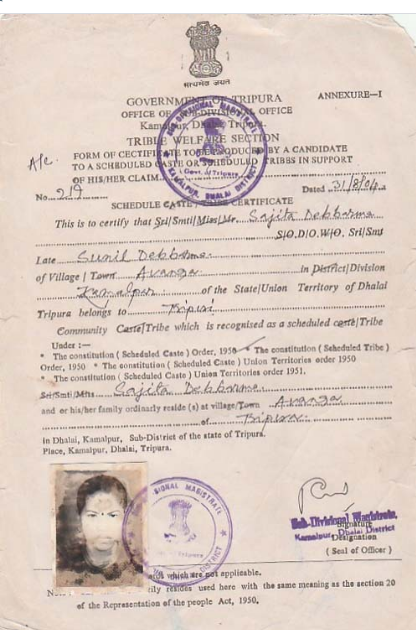 सत्यमेव जयते
GOVERNMENT OF TRIPURA
ANNEXURE—I
OFFICE OF SUB-DIVISIONAL OFFICE
Kamalpur, Dhalai, Tripura.
TRIBLE WELFARE SECTION
FORM OF CECTIFICATE TO BE PRODUCED BY A CANDIDATE
TO A SCHEDULED CASTE OR SCHEDULED TRIBES IN SUPPORT
OF HIS/HER CLAIM
Govt. of Tripura
KAMALPUR, DHALAI DISTRICT
No. 219
Dated 31/8/04
SCHEDULE CASTE / TRIBE CERTIFICATE
This is to certify that Sri/Smti/Miss/Mr. Sajita Debbarma
S/O.D/O.W/O. Sri/Smt
Late Sunil Debbarma
of Village / Town Avanga in District/Division
Kamalpur of the State/Union Territory of Dhalai
Tripura belongs to Tripuri
Community Caste/Tribe which is recognised as a scheduled caste/Tribe
Under :—
* The constitution ( Scheduled Caste ) Order, 1950 * The constitution ( Scheduled Tribe )
Order, 1950 * The constitution ( Scheduled Caste ) Union Territories order 1950
* The constitution ( Scheduled Caste ) Union Territories order 1951.
Sri/Smti/Miss Sajita Debbarma
and or his/her family ordinarily reside (s) at village/Town Avanga
of Tripura
in Dhalai, Kamalpur, Sub-District of the state of Tripura.
Place, Kamalpur, Dhalai, Tripura.
Sub-Divisional Magistrate,
Kamalpur Dhalai District
Signature
Designation
( Seal of Officer )
which are not applicable.
resides used here with the same meaning as the section 20
of the Representation of the people Act, 1950.